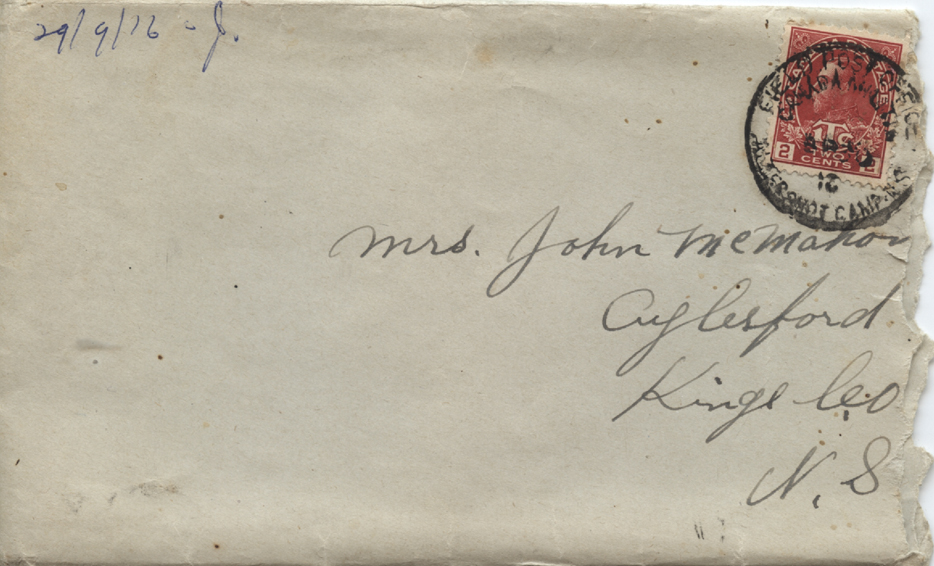 29/9/16 - J.
FIELD POST OFFICE
CANADA MILITIA
1TC
2 TWO 2
CENTS
ALDERSHOT CAMP. N.S
Mrs. John McMahon
Aylesford
Kings Co
N. S